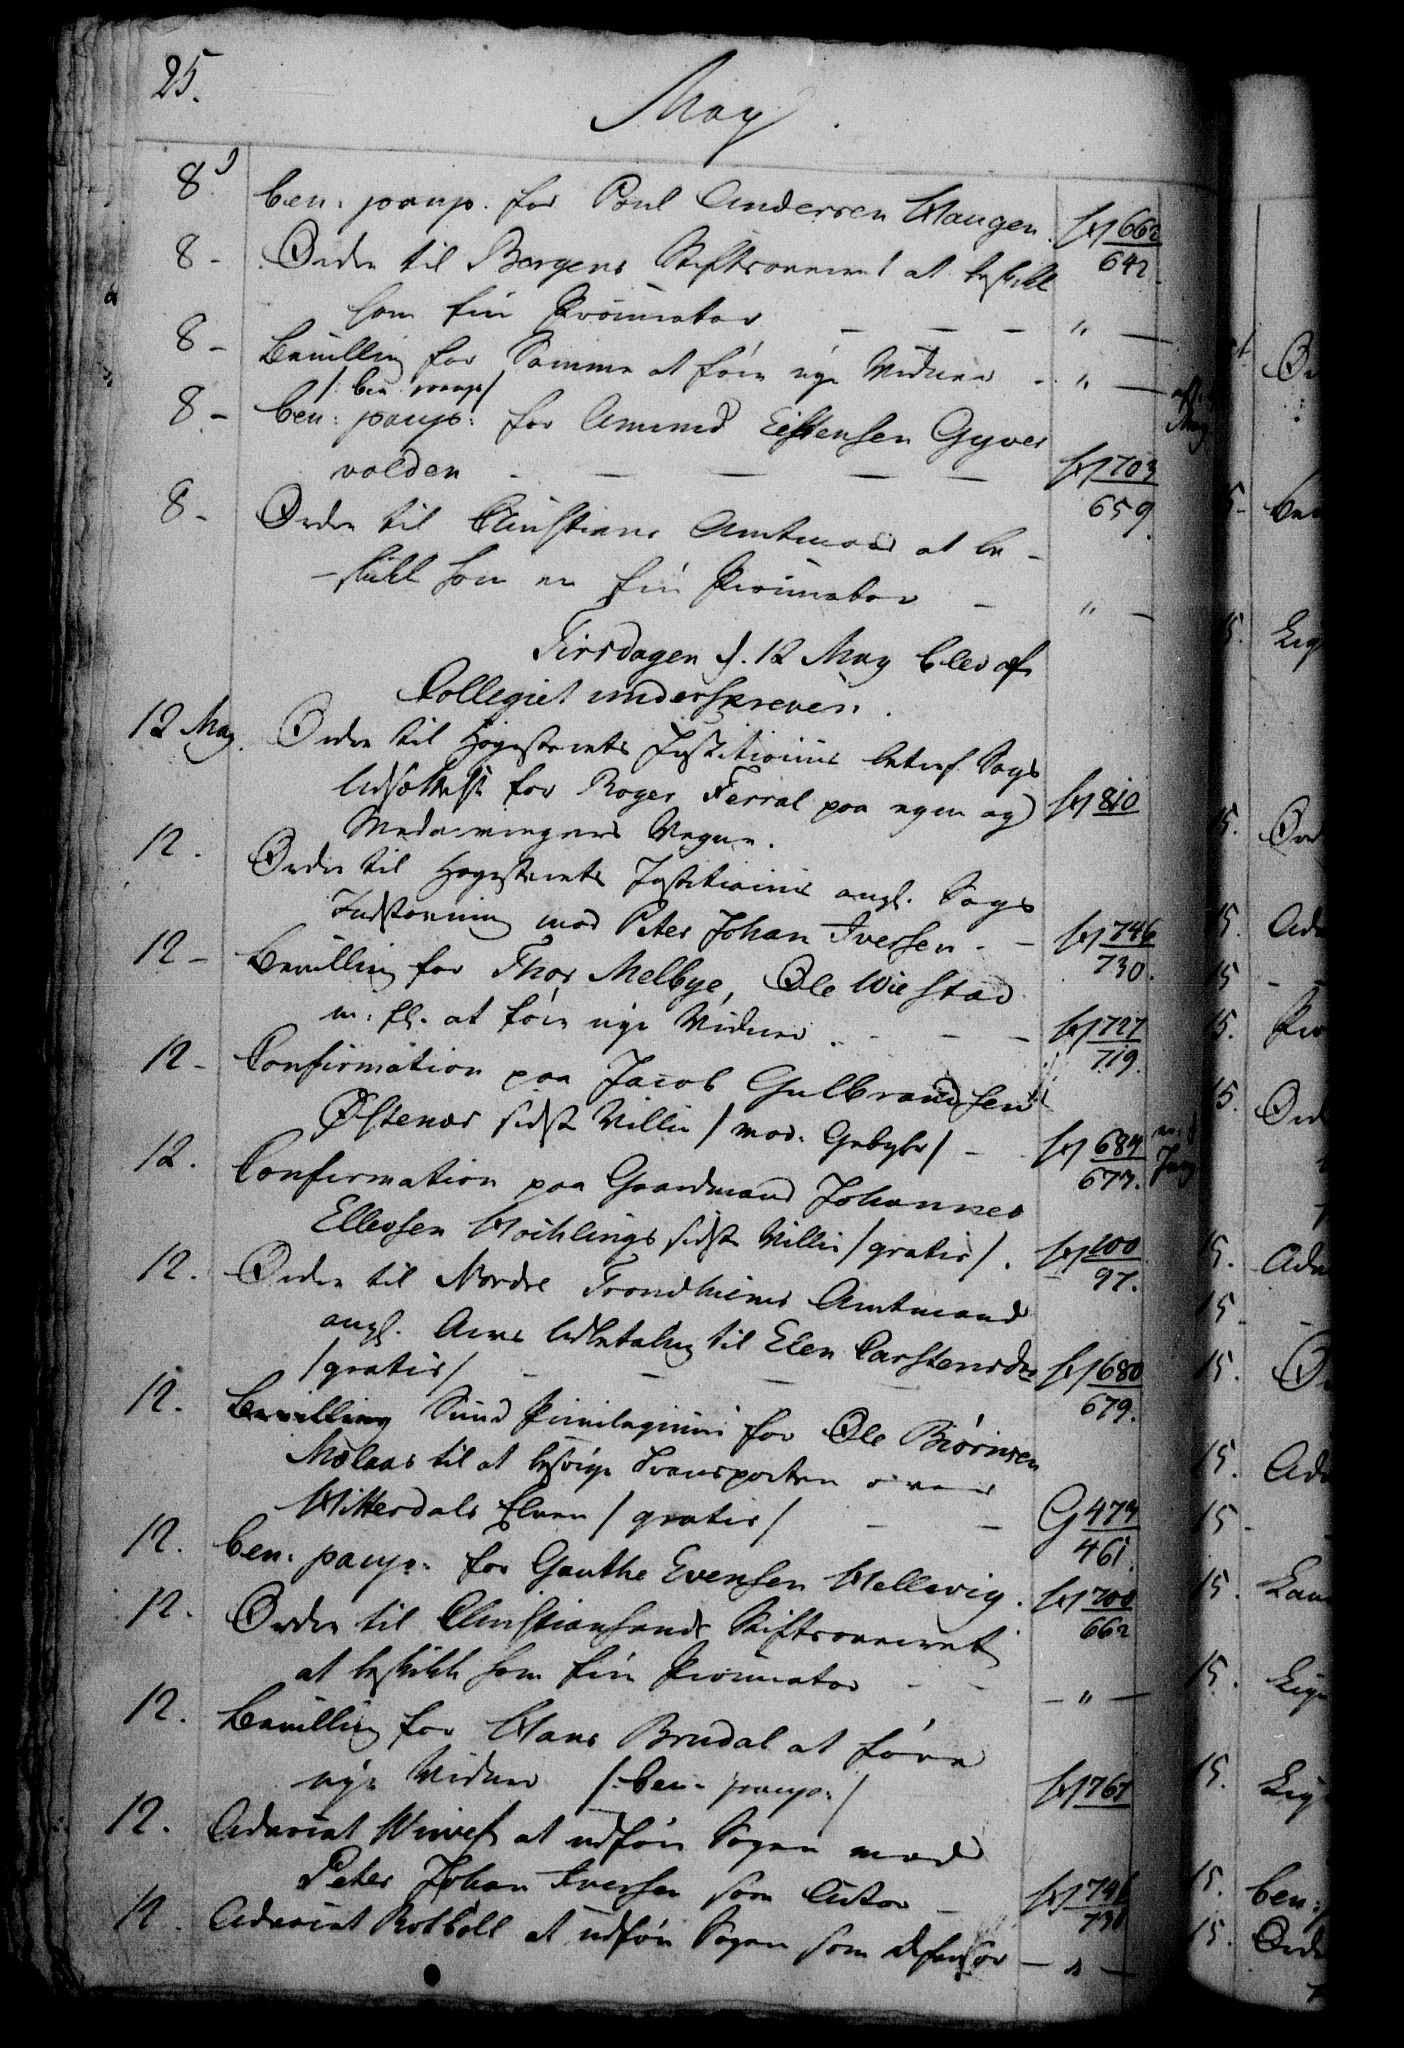 25.
May
8de ben: paup. for Poul Andersen Haugen. H 662/642
8 - Ordre til Bergens Stiftsøvrighed at beskikke
ham fri Procurator — — — " —
8 - Bevilling for Samme at føre nye Vidner - " —
/: ben: paup: /
8. - ben: paup: for Amund Eistensen Gyver
volden - — — — — H 703/659.
8 - Ordre til Christians Amtmand at be-
-skikke ham en fri Procurator - " —
Tirsdagen d. 12 May blev af
Collegiet underskreven.
12 May. Ordre til Høyesterets Justitiarius betref. Sags
Udsættelse for Roger Ferral paa egen og H 810
Medarvingers Vegne.
12. Ordre til Høyesterets Justitiarius angl. Sags
Indstævning mod Peter Johan Iversen - — H 746/730.
12 - Bevilling for Thor Melbye, Ole Wiestad
m: fl. at føre nye Vidner. - — — H 727/719.
12 - Confirmation paa Jacob Gulbrandsen
Østenes sidste Villie / mod. Gebyhr / - H 684/673.
12. Confirmation paa Gaardmand Johannes
Ellevsen sidste Villie / gratis /. H 100/97.
12. Ordre til Nordre Trondhiems Amtmand
angl. Arvs Udbetaling til Elen Carstensdr
/ gratis / - — — — H 680/679.
12. Bevilling Sund Privilegium for Ole Biørnsen
Molaas til at besørge Transporten over
Hitterdals Elven / gratis / — — G 473/461.
12. ben: paup: for Gauthe Evensen Hellevig. H 700/662
12. Ordre til Christiansands Stiftsøvrighed
at beskikke ham fri Procurator - - — " —
12. Bevilling for Hans Brudal at føre
nye Vidner /: ben: paup: / H 767
12. Advocat at udføre Sagen mod
Peter Johan Iversen som Actor - H 746/730
12. Advocat Rotbøll at udføre Sagen som Defensor — " —